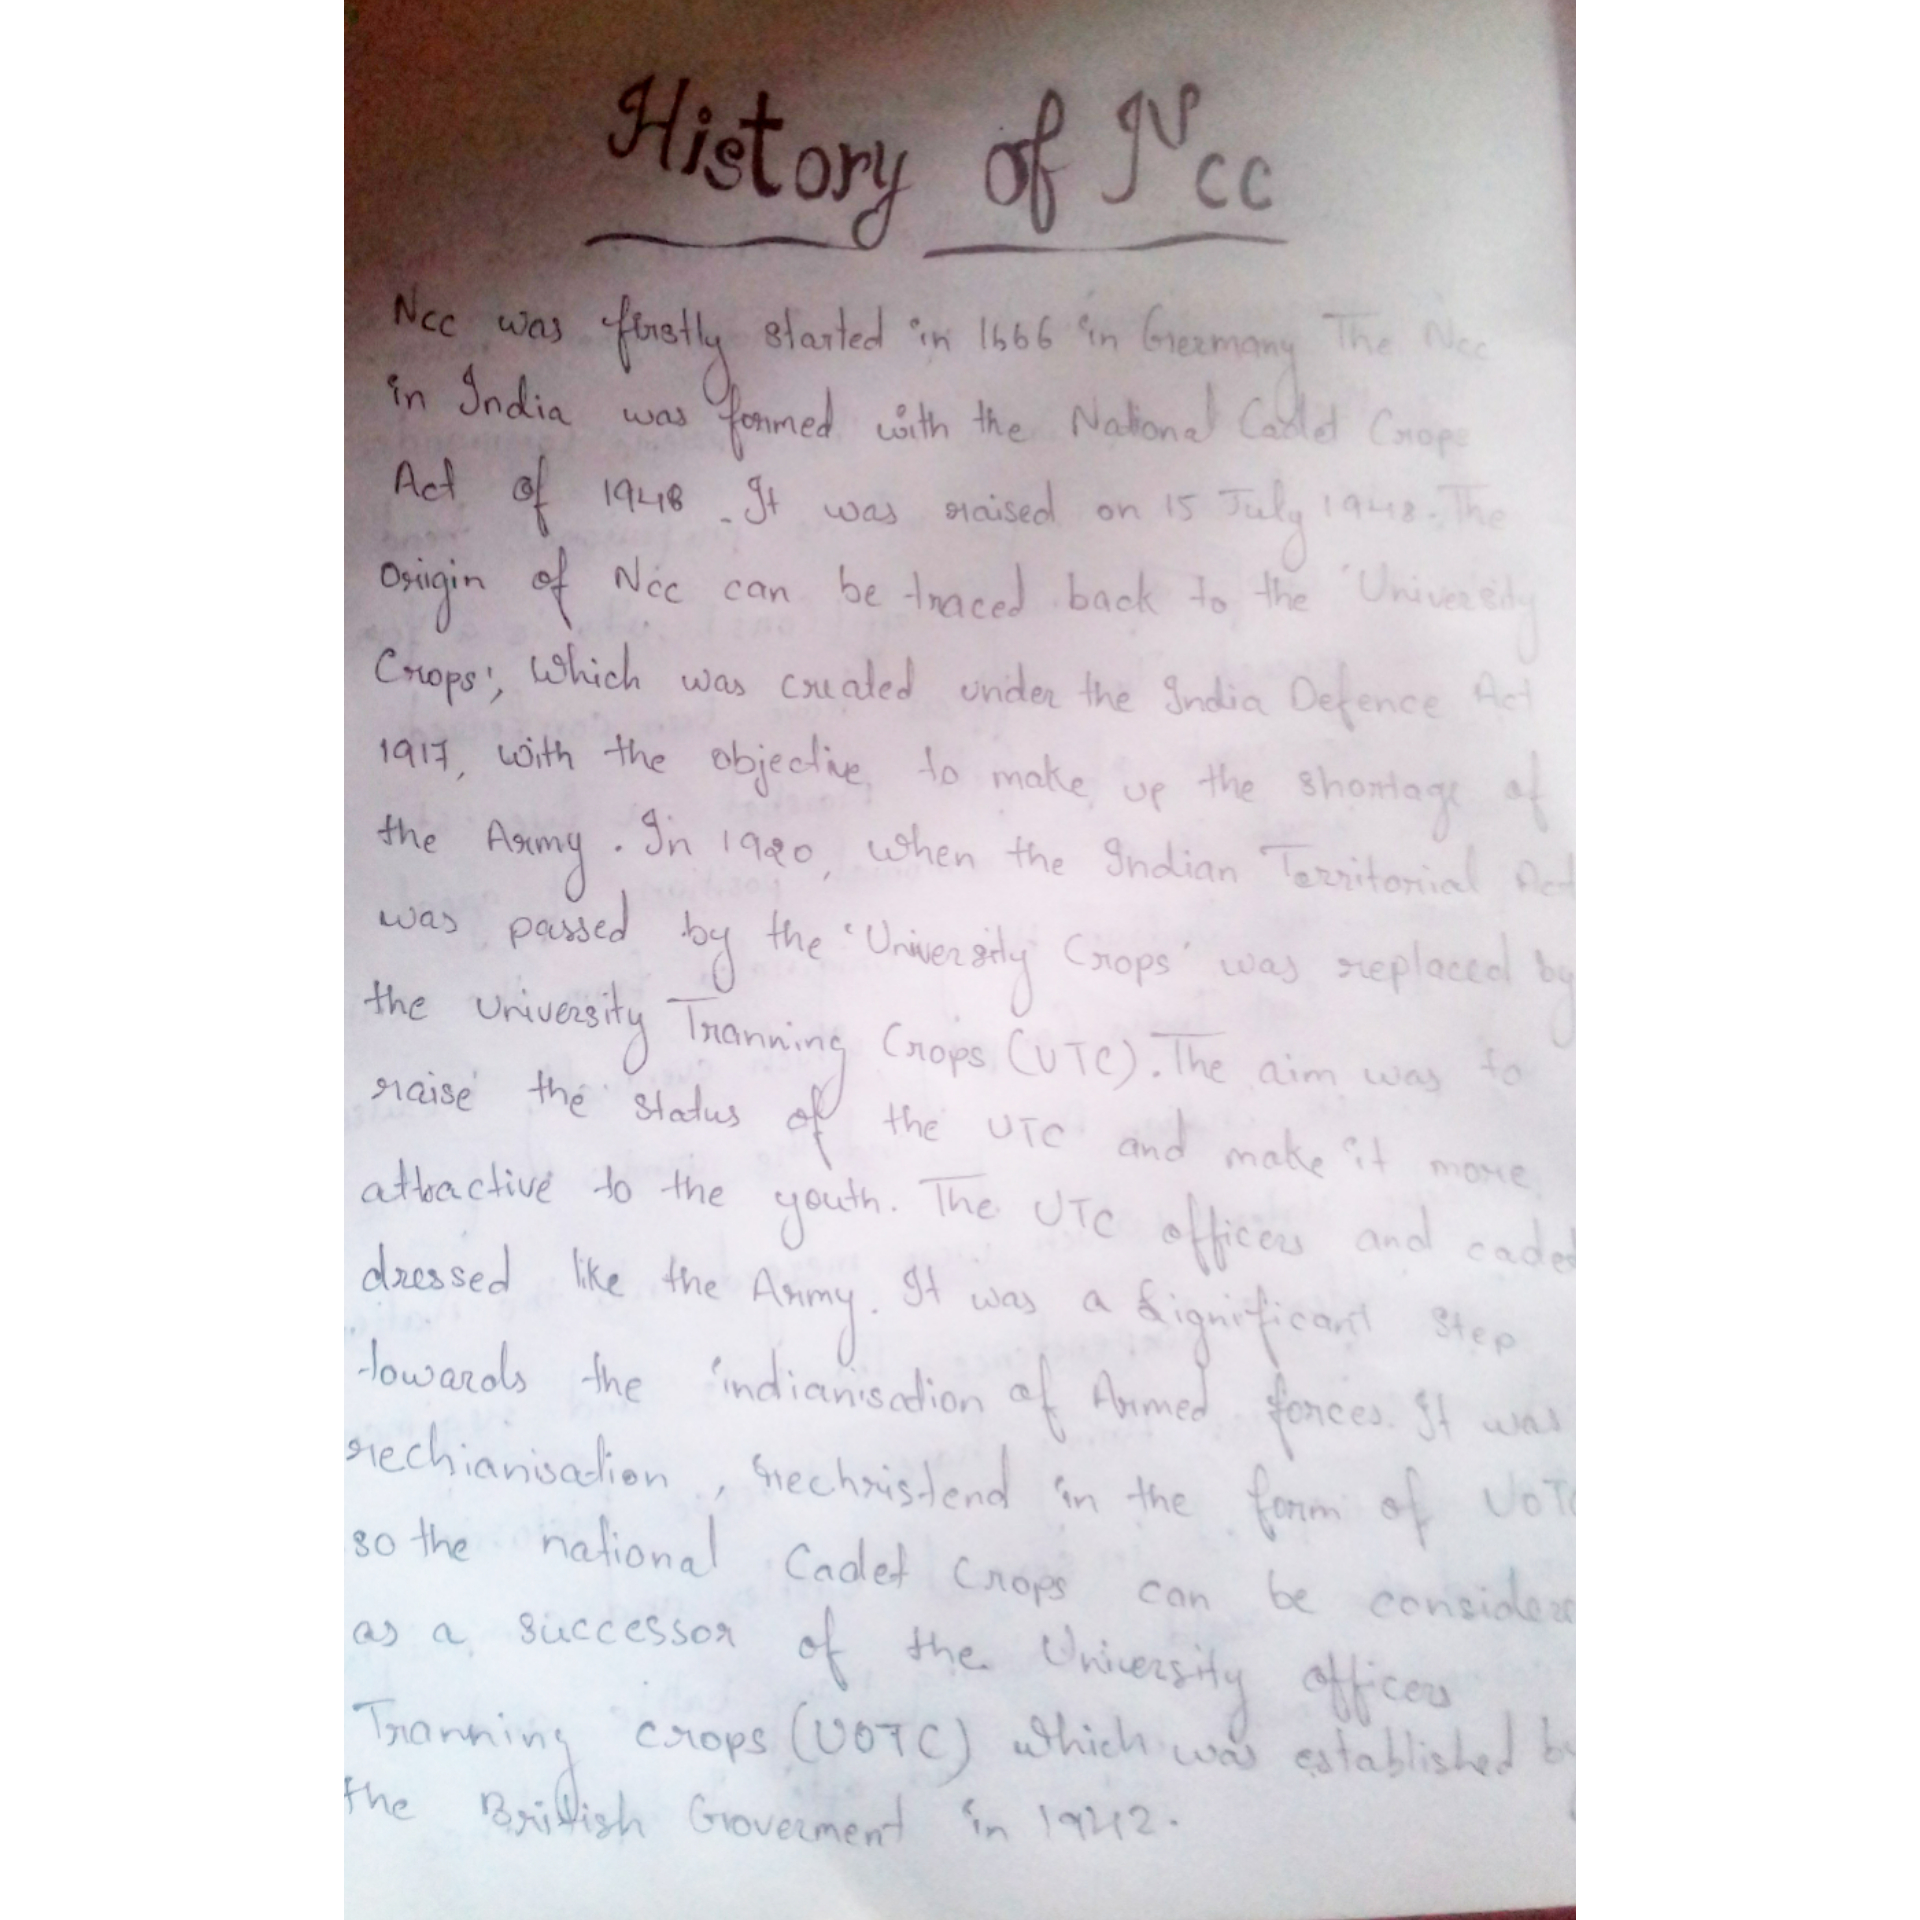 History of NCC
NCC was firstly started in 1666 in Germany The NCC
in India was formed with the National Cadet Crops
Act of 1948. It was raised on 15 July 1948. The
Origin of NCC can be traced back to the 'University
Crops', Which was created under the India Defence Act
1917, with the objective to make up the shortage of
the Army. In 1920, when the Indian Territorial Act
was passed by the 'University Crops' was replaced by
the University Tranning Crops (UTC). The aim was to
raise the status of the UTC and make it more
attractive to the youth. The UTC officers and cadet
dressed like the Army. It was a significant step
towards the indianisation of Armed forces. It was
rechianisation, rechristend in the form of UOTC
so the national Cadet Crops can be consider
as a successor of the University officers
Tranning crops (UOTC) which was established by
the British Goverment in 1942.